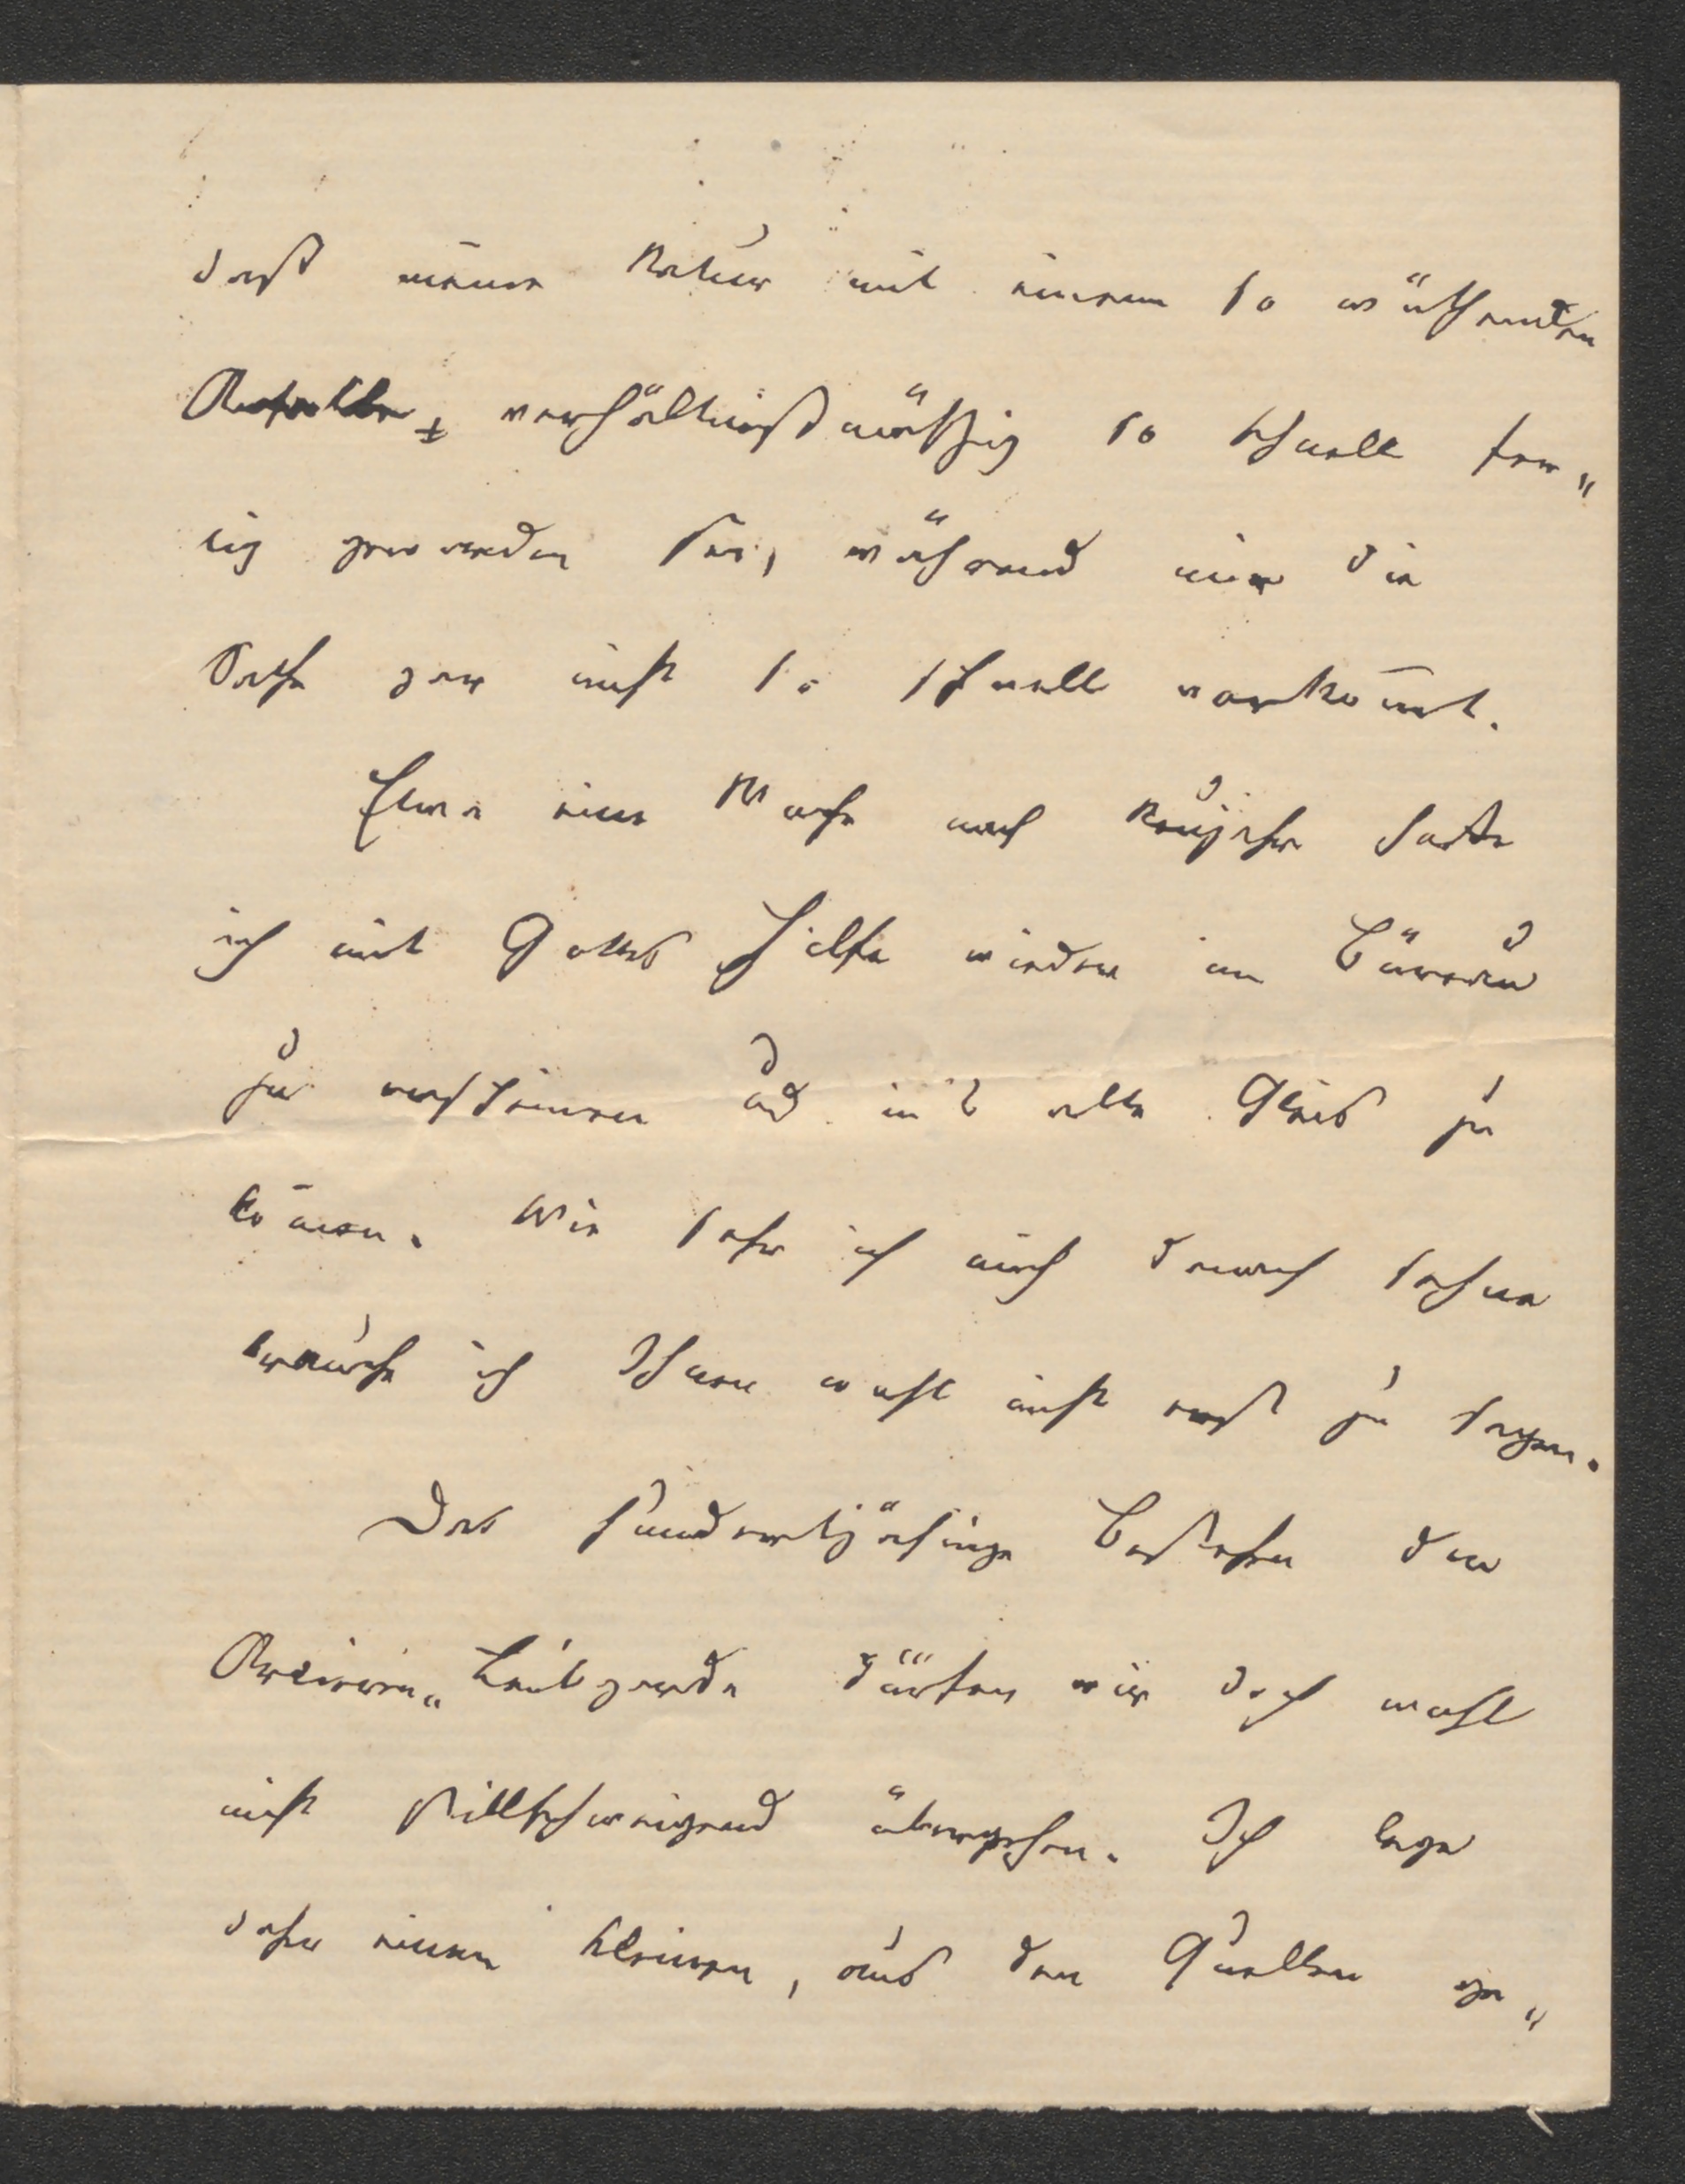 daß meine Natur mit einem so wüthenden
Anfalle verhältnißmäßig so schnell fer„
tig geworden sei, während mir die
Sache gar nicht so schnell vorkom̄t.
Etwa eine Woche nach Neujahr hoffe
ich mit Gottes Hilfe wieder im Bureau
zu erscheinen und in's alte Gleis zu
kom̄en. Wie sehr ich mich danach sehne
brauche ich Ihnen wohl nicht erst zu sagen.
Das hundertjährige Bestehen der
Arcieren„Leibgarde dürfen wir doch wohl
nicht stillschweigend übergehen. Ich lege
daher einen kleinen, aus den Quellen ge„